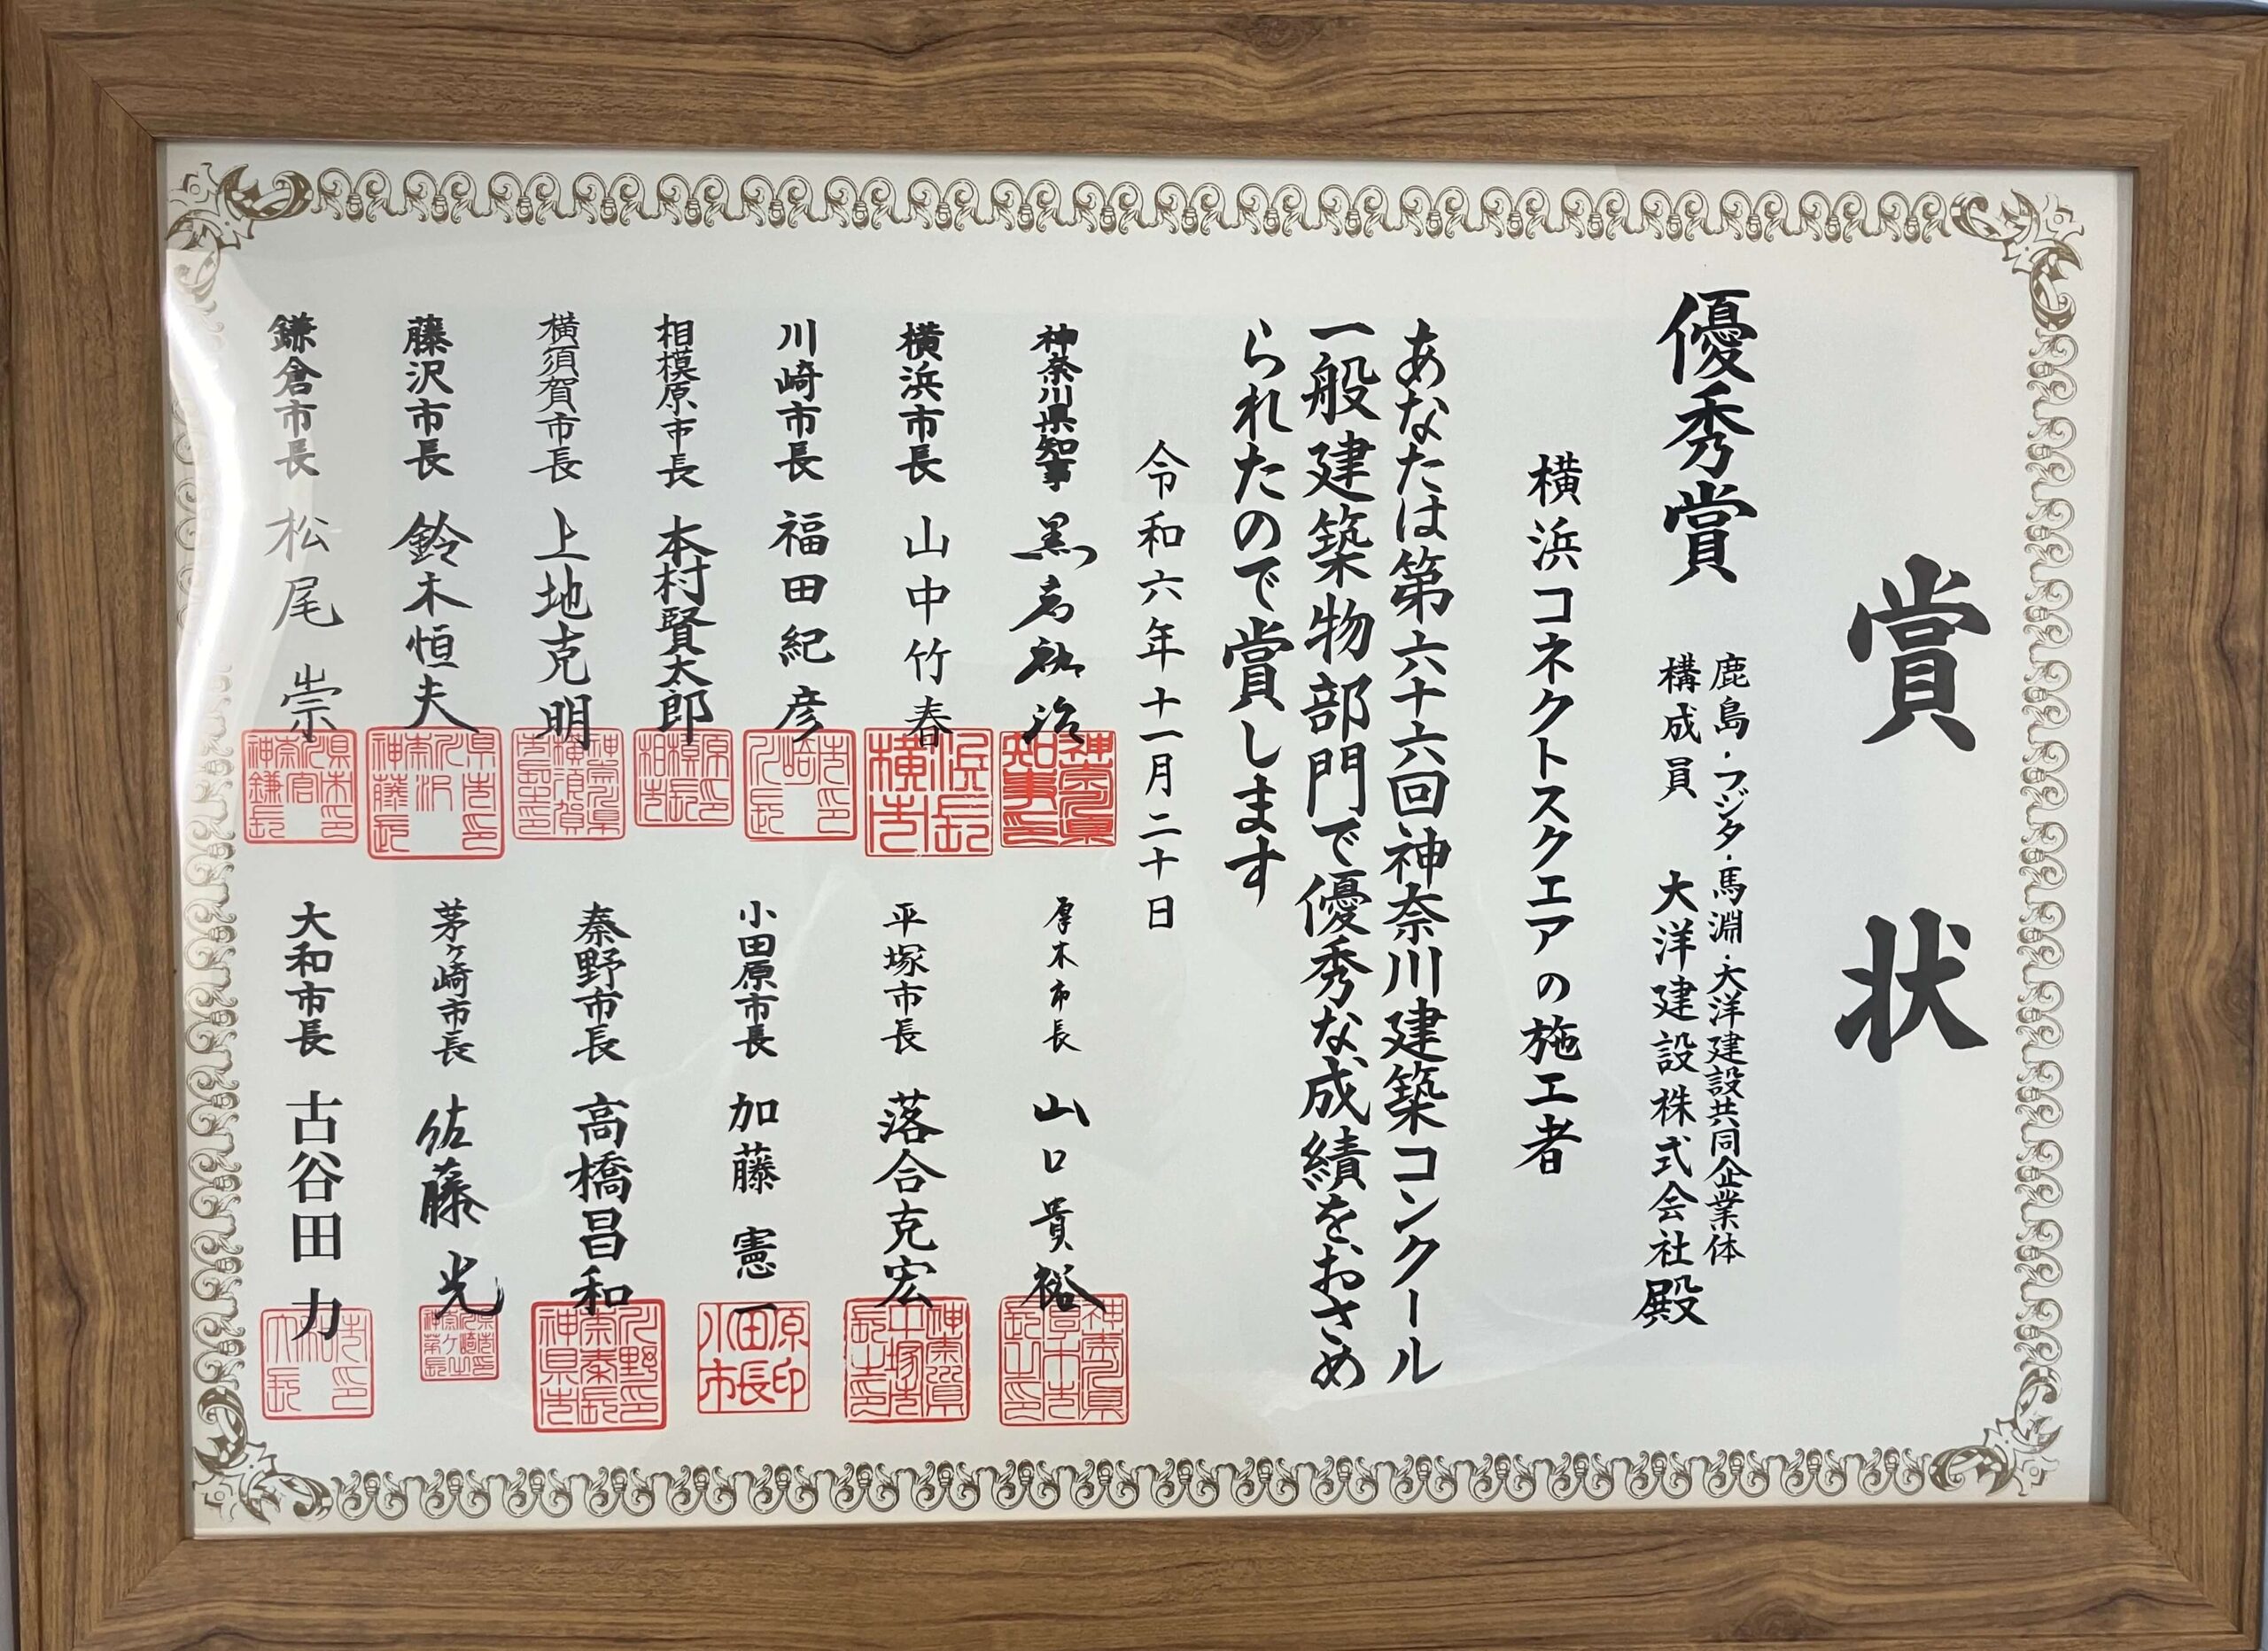 賞状
優秀賞
鹿島・フジタ・馬淵・大洋建設共同企業体
構成員 大洋建設株式会社殿
横浜コネクトスクエアの施工者
あなたは第六十六回神奈川建築コンクール
一般建築物部門で優秀な成績をおさめ
られたので賞します
令和六年十一月二十日
神奈川県知事 黒岩祐治
横浜市長 山中竹春
川崎市長 福田紀彦
相模原市長 本村賢太郎
横須賀市長 上地克明
藤沢市長 鈴木恒夫
鎌倉市長 松尾崇
厚木市長 山口貴裕
平塚市長 落合克宏
小田原市長 加藤憲一
秦野市長 高橋昌和
茅ヶ崎市長 佐藤光
大和市長 古谷田力